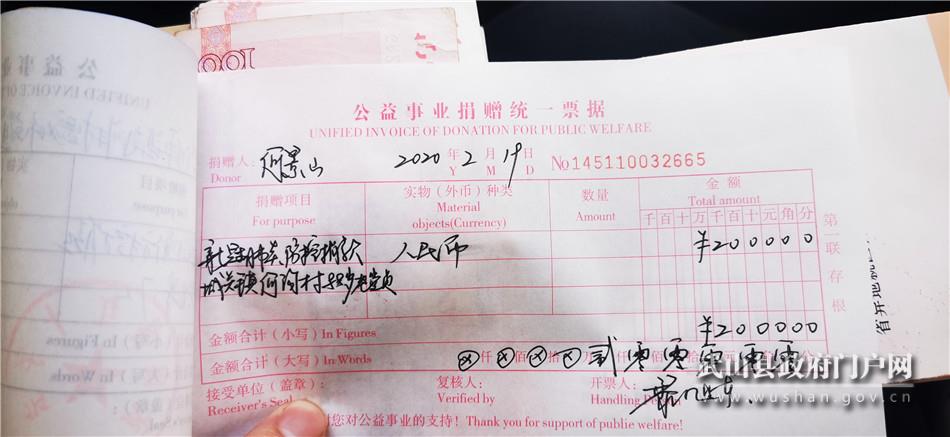 公益事业捐赠统一票据
UNIFIED INVOICE OF DONATION FOR PUBLIC WELFARE
捐赠人: 何景山 2020 年 2 月 19 日 No 145110032665
Donor Y M D
捐赠项目 实物（外币）种类 数量 金额
For purpose Material objects(Currency) Amount Total amount
千百十万千百十元角分
新冠肺炎防控捐款 人民币 ¥200000
城关镇何沟村 岁老党员
金额合计（小写）In Figures ¥200000
金额合计（大写）In Words ⊗仟⊗佰⊗拾⊗万 贰 零 零 零 零 零
接受单位（盖章）: 复核人: 开票人:
Receiver's Seal Verified by Handling Pe
谢您对公益事业的支持！Thank you for support of public welfare!
第一联存根
公益事业
UNIFIED INVOICE OF
For purpose
in Figures
in Words
100
武山县政府门户网
www.wushan.gov.cn